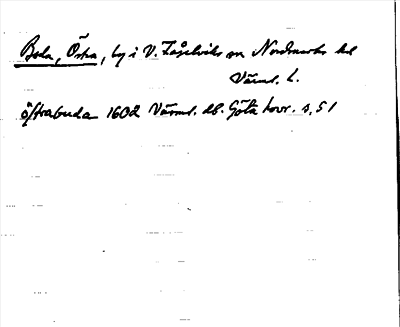 Boda, Östra, by i V. Fågelviks sn Nordmarks hd
Värml. l.
östrabuda 1602 Värml. db. Göta hovr. s. 51